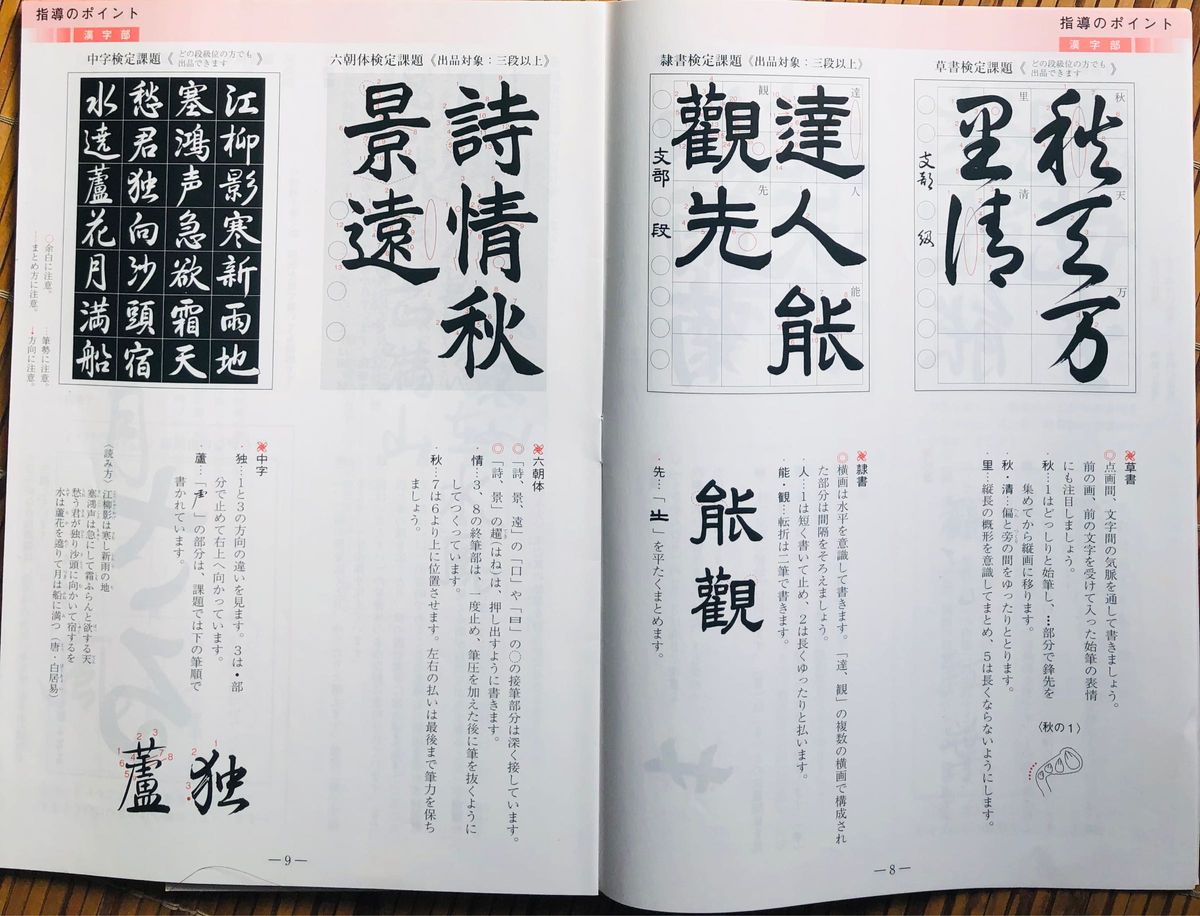 指導のポイント
漢字部
草書検定課題《どの段級位の方でも出品できます》
秋天万
里清
秋
天
万
里
清
支部
級
隷書検定課題《出品対象:三段以上》
達人能
觀先
達
人
能
観
先
支部
段
草書
◎点画間、文字間の気脈を通して書きましょう。
前の画、前の文字を受けて入った始筆の表情
にも注目しましょう。
・秋…1はどっしりと始筆し、…部分で鋒先を
集めてから縦画に移ります。
・秋・清…偏と旁の間をゆったりととります。
・里…縦長の概形を意識してまとめ、5は長くならないようにします。
〈秋の1〉
隷書
◎横画は水平を意識して書きます。「達、観」の複数の横画で構成され
た部分は間隔をそろえましょう。
・人…1は短く書いて止め、2は長くゆったりと払います。
・能・観…転折は二筆で書きます。
能觀
・先…「㞢」を平たくまとめます。
―8―
指導のポイント
漢字部
六朝体検定課題《出品対象:三段以上》
詩情秋
景遠
中字検定課題《どの段級位の方でも出品できます》
江柳影寒新雨地
塞鴻声急欲霜天
愁君独向沙頭宿
水遶蘆花月満船
○余白に注意。
…まとめ方に注意。
…筆勢に注意。
→方向に注意。
六朝体
◎「詩、景、遠」の「口」や「日」の○の接筆部分は深く接しています。
◎「詩、景」の趯(はね)は、押し出すように書きます。
・情…3、8の終筆部は、一度止め、筆圧を加えた後に筆を抜くように
してつくっています。
・秋…7は6より上に位置させます。左右の払いは最後まで筆力を保ち
ましょう。
中字
・独…1と3の方向の違いを見ます。3は・部
分で止めて右上へ向かっています。
・蘆…「虍」の部分は、課題では下の筆順で
書かれています。
独
蘆
〈読み方〉江柳影は寒し新雨の地
塞鴻声は急にして霜ふらんと欲する天
愁う君が独り沙頭に向かいて宿するを
水は蘆花を遶りて月は船に満つ(唐・白居易)
―9―